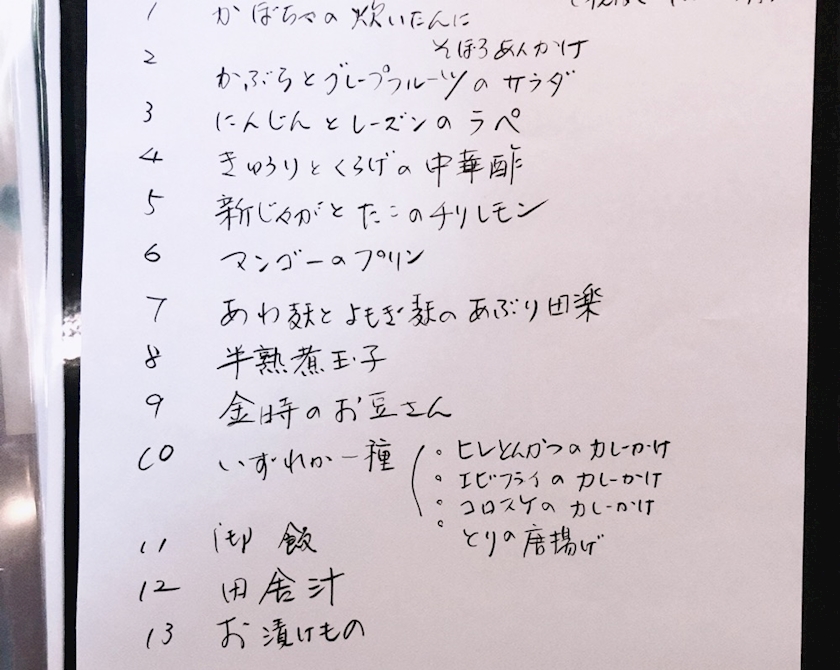 1 かぼちゃの炊いたんに
そぼろあんかけ
2 かぶらとグレープフルーツのサラダ
3 にんじんとレーズンのラペ
4 きゅうりとくらげの中華酢
5 新じゃがとたこのチリレモン
6 マンゴーのプリン
7 あわ麸とよもぎ麸のあぶり田楽
8 半熟煮玉子
9 金時のお豆さん
10 いずれか一種
・ヒレとんかつのカレーかけ
・エビフライのカレーかけ
・コロスケのカレーかけ
・とりの唐揚げ
11 御飯
12 田舎汁
13 お漬けもの